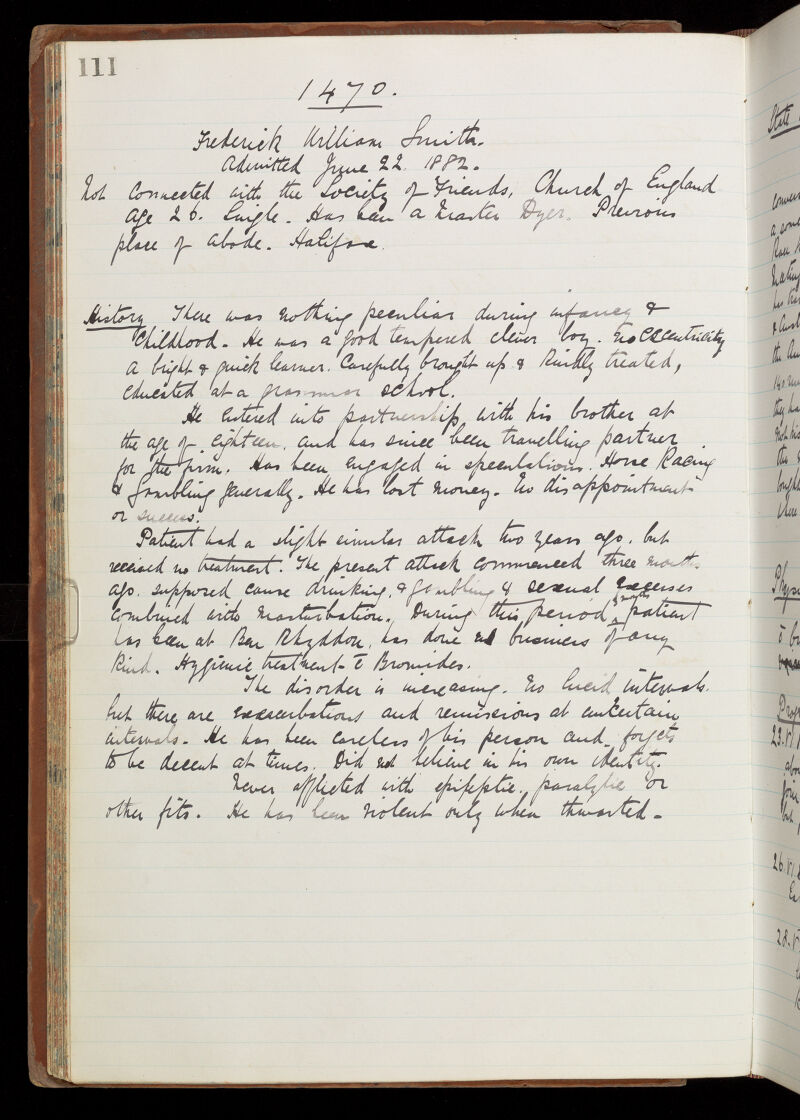 111
1470.
Frederick William Smith.
Admitted June 22 1882.
Not connected with the Society of Friends, Church of England
age 26. Single. Has been a Master Dyer. Previous
place of abode. Halifax.
History There was nothing peculiar during infancy &
Childhood. He was a good tempered clever boy. No eccentricity
a bright & quick learner. Carefully brought up & kindly treated,
educated at a grammar school.
He entered into partnership with his brother at
the age of eighteen, and has since been travelling partner
for the firm. Has been engaged in speculations. Horse Racing
& Gambling generally. He has lost money. No disappointment
or success.
Patient had a slight similar attack two years ago, but
received no treatment. The present attack commenced three months
ago. supposed cause drinking, & gambling & sexual excesses
combined with masturbation. During this period patient
has been at Ben Rhyddon, has done no business of any
kind. Hygienic treatment c̄ Bromides.
The disorder is increasing. No lucid intervals.
but there are exacerbations and remissions at uncertain
intervals. He has been careless of his person and forgets
to be decent at times. Did not believe in his own identity.
Never afflicted with epileptic, paralytic or
other fits. He has been violent only when thwarted.
State
Prog
23.VI
26.VI.
28.V